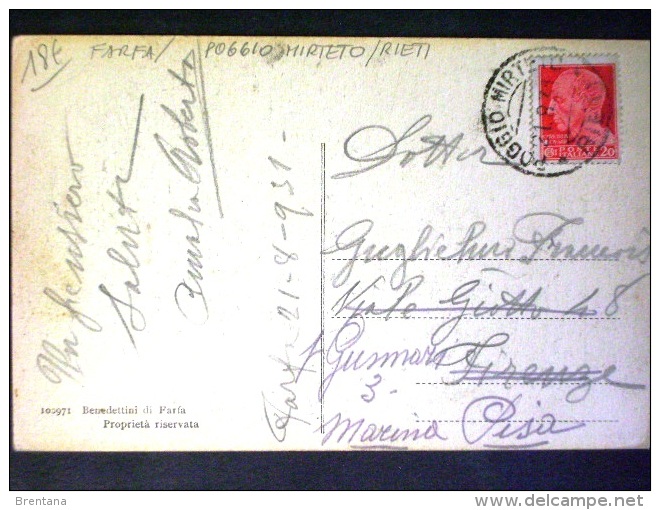 18€ FARFA / POGGIO MIRTETO / RIETI
POGGIO MIRTETO
POSTE
ITALIANE 20
Un pensiero
Saluti
Roberto
Farfa 21-8-931-
Dott.
Guglielmo
Viale Giotto 48
Firenze
3-
Marina Pisa
100971 Benedettini di Farfa
Proprietà riservata
Brentana
delcampe.net